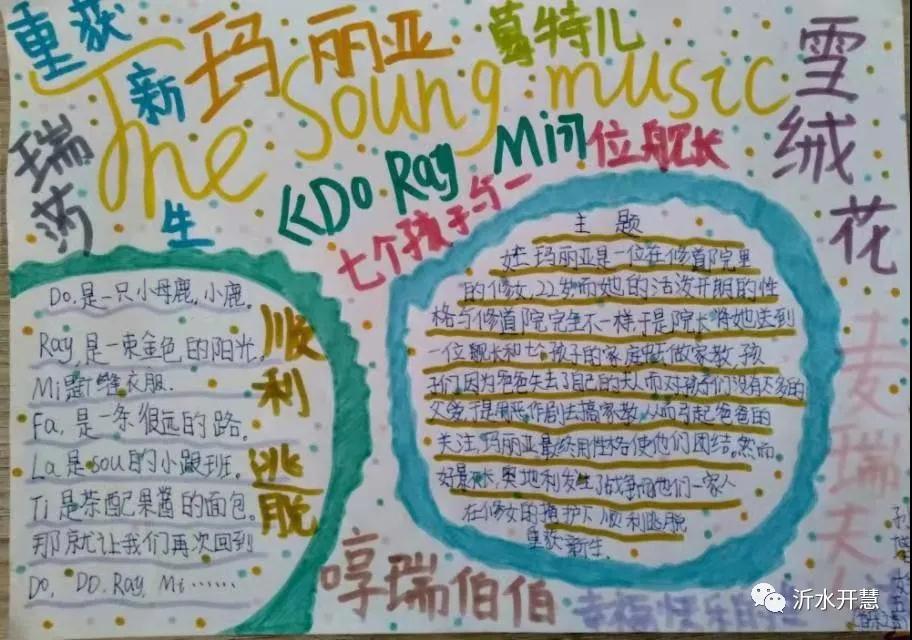 重获
新
生
玛丽亚
慕特儿
雪绒花
The Soung music
瑞莎
《Do Ray Mi》
位舰长
七个孩子与一
Do.是一只小母鹿,小鹿.
Ray,是一束金色的阳光.
Mi是缝衣服.
Fa,是一条很远的路.
La是sou的小跟班.
Ti是茶配果酱的面包.
那就让我们再次回到
Do, DO. Ray, Mi……
顺利
逃脱
主题
玛丽亚是一位在修道院里
的修女,22岁而她的活泼开朗的性
格与修道院完全不一样,于是院长将她送到
一位舰长和七个孩子的家庭做家教,孩
子们因为爸爸失去了自己的夫人而对孩子们没有太多的
父爱,于是用恶作剧去搞家教,从而引起爸爸的
关注,玛丽亚最终用性格使他们团结,然而
好景不长,奥地利发生了战争而他们一家人
在修女的掩护下顺利逃脱
重获新生.
麦瑞夫
哼瑞伯伯
幸福快乐的
沂水开慧